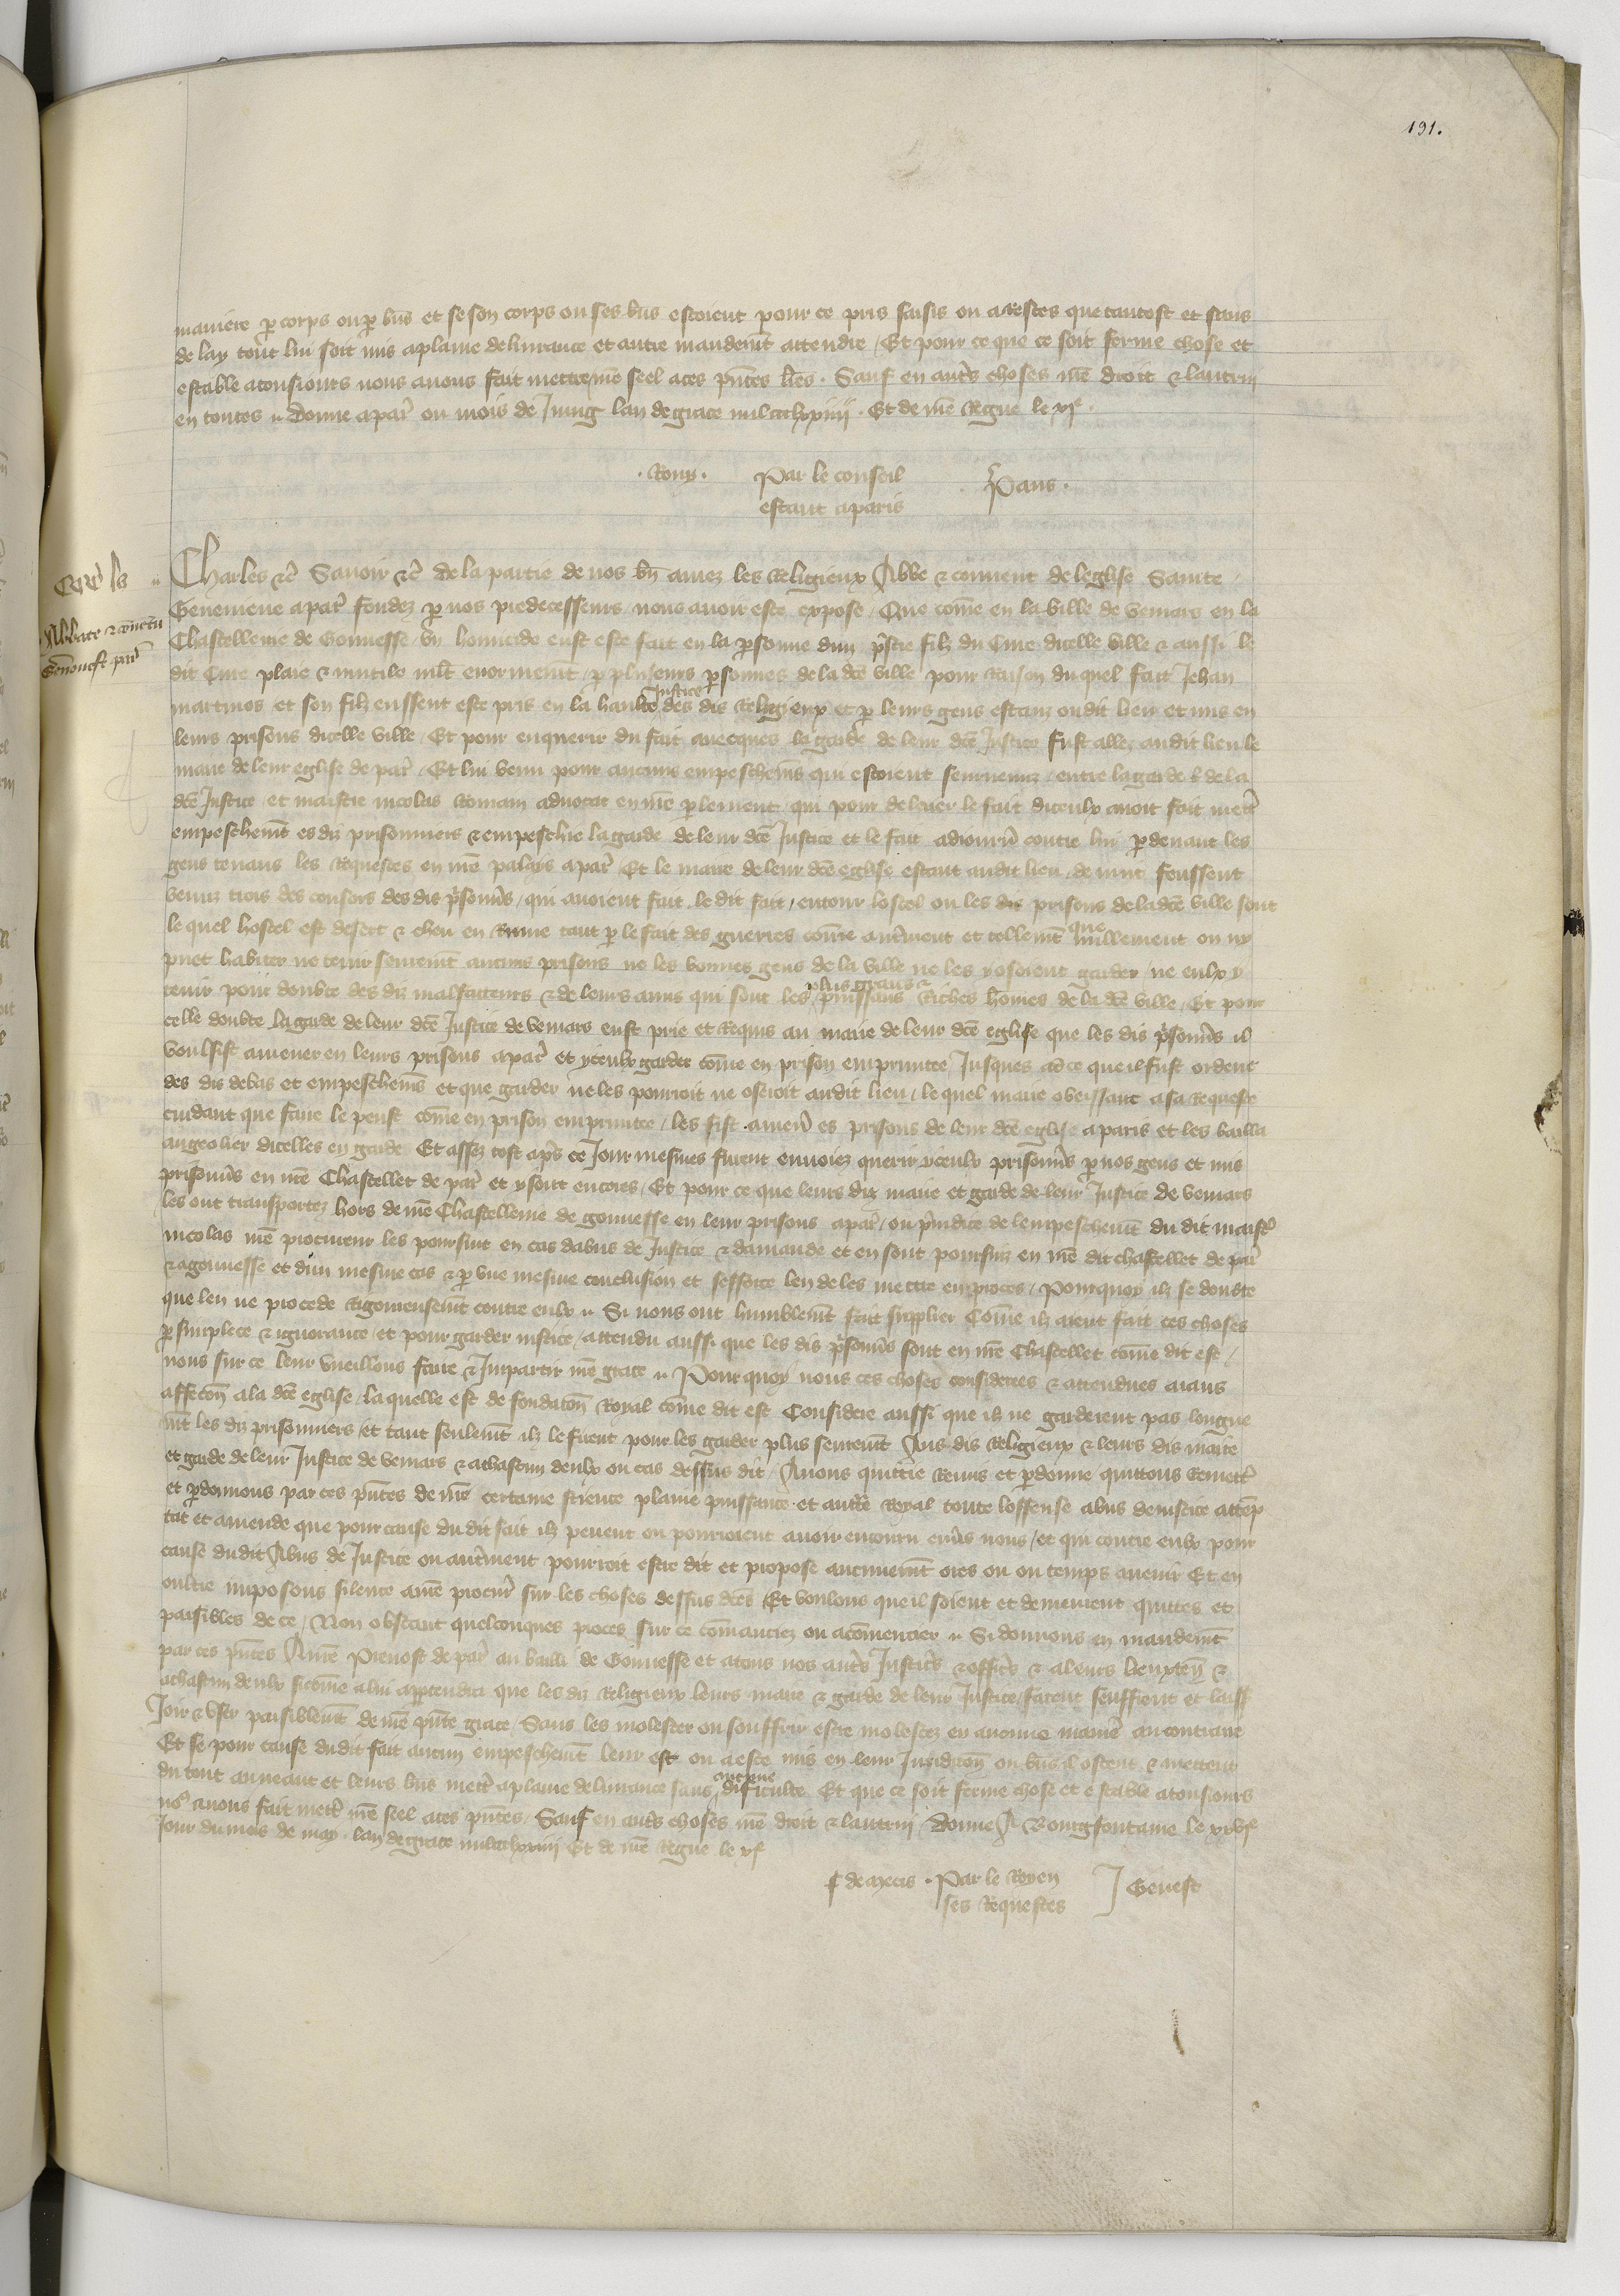 191.
maniere par corps ou par bñs et se son corps ou ses bñs estoient pour ce pris saisis ou arrestes que tantost et sans
delay tout lui soit mis a plaine deliurance et autre mandemt attendre / Et pour ce que ce soit ferme chose et
estable atousiours nous auons fait mettre nr̃e seel a ces pñtes lr̃es . Sauf en autrs choses nr̃e droit & lautrui
en toutes donne a par̃ ou mois de Juing lan de grace mil ccclxxiiii . Et de nr̃e Regne le xie .
. Rony . Par le conseil P. Pans .
estant a paris
Charles &c̃ Sauoir &c̃ de la partie de nos bñ amez les Religieux Abbe & conuent de leglise Sainte
Geneuieue a par̃ fondez par nos predecesseurs / nous auoir este expose / Que cõme en la ville de vemars en la
Chastellenie de Gonnesse vn homicide eust este fait en la personne dun prestre filz du Cure dicelle ville & aussi le
dit Cure plaie & mutile mlt enormemt / par plusieurs personnes de la dc̃e ville pour Raison du quel fait Jehan
martinos et son filz eussent este pris en la haulte Justice des dis Religieux et par leurs gens estanz ou dit lieu et mis en
leurs prisons dicelle ville / Et pour enquerir du fait auecques la garde de leur dc̃e Justice fust alle au dit lieu le
maire de leur eglise de par̃ / Et lui venu pour aucuns empeschemẽs qui estoient seuruenuz / entre la garde de la
dc̃e Justice / et maistre nicolas Romain aduocat en nr̃e parlement / qui pour deleuer le fait diceulx auoit fait mettr̃
empeschemt es diz prisonniers & empeschie la garde de leur dc̃e Justice et le fait adiourñ contre lui par deuant les
gens tenans les Requestes en nr̃e palays a par̃ / Et le maire de leur dc̃e eglise estant audit lieu / de nuit feussent
venuz trois des consors des dis prisonñs / qui auoient fait le dit fait / entour lostel ou les dis prisons de la dc̃e ville sont
le quel hostel est desert & cheu en Ruine tant par le fait des guerres cõme autrement et tellemt que nullement on ny
puet habiter ne tenir seuremt aucuns prisons ne les bonnes gens de la ville ne les y osoient garder / ne eulx y
tenir pour doubte des diz malfaitteurs & de leurs amis qui sont les plus grans & puissans Riches hom̃es de la dc̃e ville / Et pour
celle doubte la garde de leur dc̃e Justice de vemars eust prie et Requis au maire de leur dc̃e eglise que les dis prisonñs il
voulsist amener en leurs prisons a par̃ et yceulx garder cõme en prison empruntee / Jusques ad ce que il fust ordene
des dis debas et empeschemẽs et que garder ne les pourroit ne oseroit audit lieu / le quel maire obeissant a sa Requeste
cuidant que faire le peust cõme en prison empruntee / les fist ameñ es prisons de leur dc̃e eglise a paris et les bailla
au geolier dicelles en garde Et assez tost aprs ce Jour mesmes furent enuoiez querir yceulx prisonñs par nos gens et mis
prisonñs en nr̃e Chastellet de par̃ et y sont encores / Et pour ce que leurs diz maire et garde de leur Justice de vemars
les ont transportez hors de nr̃e Chastellenie de gonnesse en leur prisons a par̃ / ou preiudice de lempeschemt du dit maistr̃
nicolas nr̃e procureur les poursuit en cas dabus de Justice & damande et en sont poursuiz en nr̃e dit chastellet de par̃
& a gonnesse et dun mesme cas & par vne mesme conclusion et sefforce len de les mettre en proces / Pour quoy ilz se doubte
que len ne procede Rigoureusemt contre eulx Si nous ont humblemt fait supplier Cõme ilz aient fait ces choses
par simplece & ignorance / et pour garder iustice / attendu aussi que les dis prisonñs sont en nr̃e Chastellet cõme dit est /
nous sur ce leur vueillons faire & Jmpartir nr̃e grace Pour quoy nous ces choses considerees & attendues aians
affeccõn a la dc̃e eglise / la quelle est de fondacõn Royal cõme dit est Considere aussi que ilz ne garderent pas longue
mt les diz prisonniers / et tant seulemt ilz le firent pour les garder plus seuremt Aus dis Religieux & leurs dis maire
et garde de leur Justice de vemars & a chascun deulx ou cas dessus dit / Auons quittie Remis et pardonne / quittons Remettr̃
et pardonnons par ces pñtes de nr̃e certaine science plaine puissance et auttẽ Royal toute loffense abus de iustice attemp
tat et amende que pour cause du dit fait ilz peuent ou pourroient auoir encouru enũs nous / et qui contre eulx pour
cause dudit Abus de Justice ou autrement pourroit estre dit et propose aucunemt ores ou ou temps auenir Et en
oultre imposons silence a nr̃e procur̃ sur les choses dessus dc̃es Et voulons que il soient et demeurent quittes et
paisibles de ce / Non obstant quelconques proces sur ce cõmanciez ou a cõmencier Si donnons en mandemt
par ces pñtes A nr̃e Preuost de par̃ au bailli de Gonnesse et a tous nos autrs Justicrs & officrs & a leurs lieuxteñ &
a chascun deulx sicõme a lui appartendra que les diz Religieux leurs maire & garde de leur Justice / facent seuffrent et laiss
Joir & vser paisiblemt de nr̃e pñte grace / Sans les molester ou souffrir estre molestez en aucune manier̃ au contraire
Et se pour cause du dit fait aucun empeschemt leur est ou a este mis en leur Juridicõn ou bñs il ostent & mettent
du tout au neant et leurs bñs mettr̃ a plaine deliurance sans aucune difficulte Et que ce soit ferme chose et estable a tousiours
nos auons fait mettr̃ nr̃e seel a ces pñtes / Sauf en autrs choses nr̃e droit & lautrui / donne A Bourgfontaine le xxvie
Jour du mois de may . lan de grace mil ccclxxiiii Et de nr̃e Regne le xie
f de Metis . Par le Roy en J Geuest
ses Requestes
Abbate & conuetu